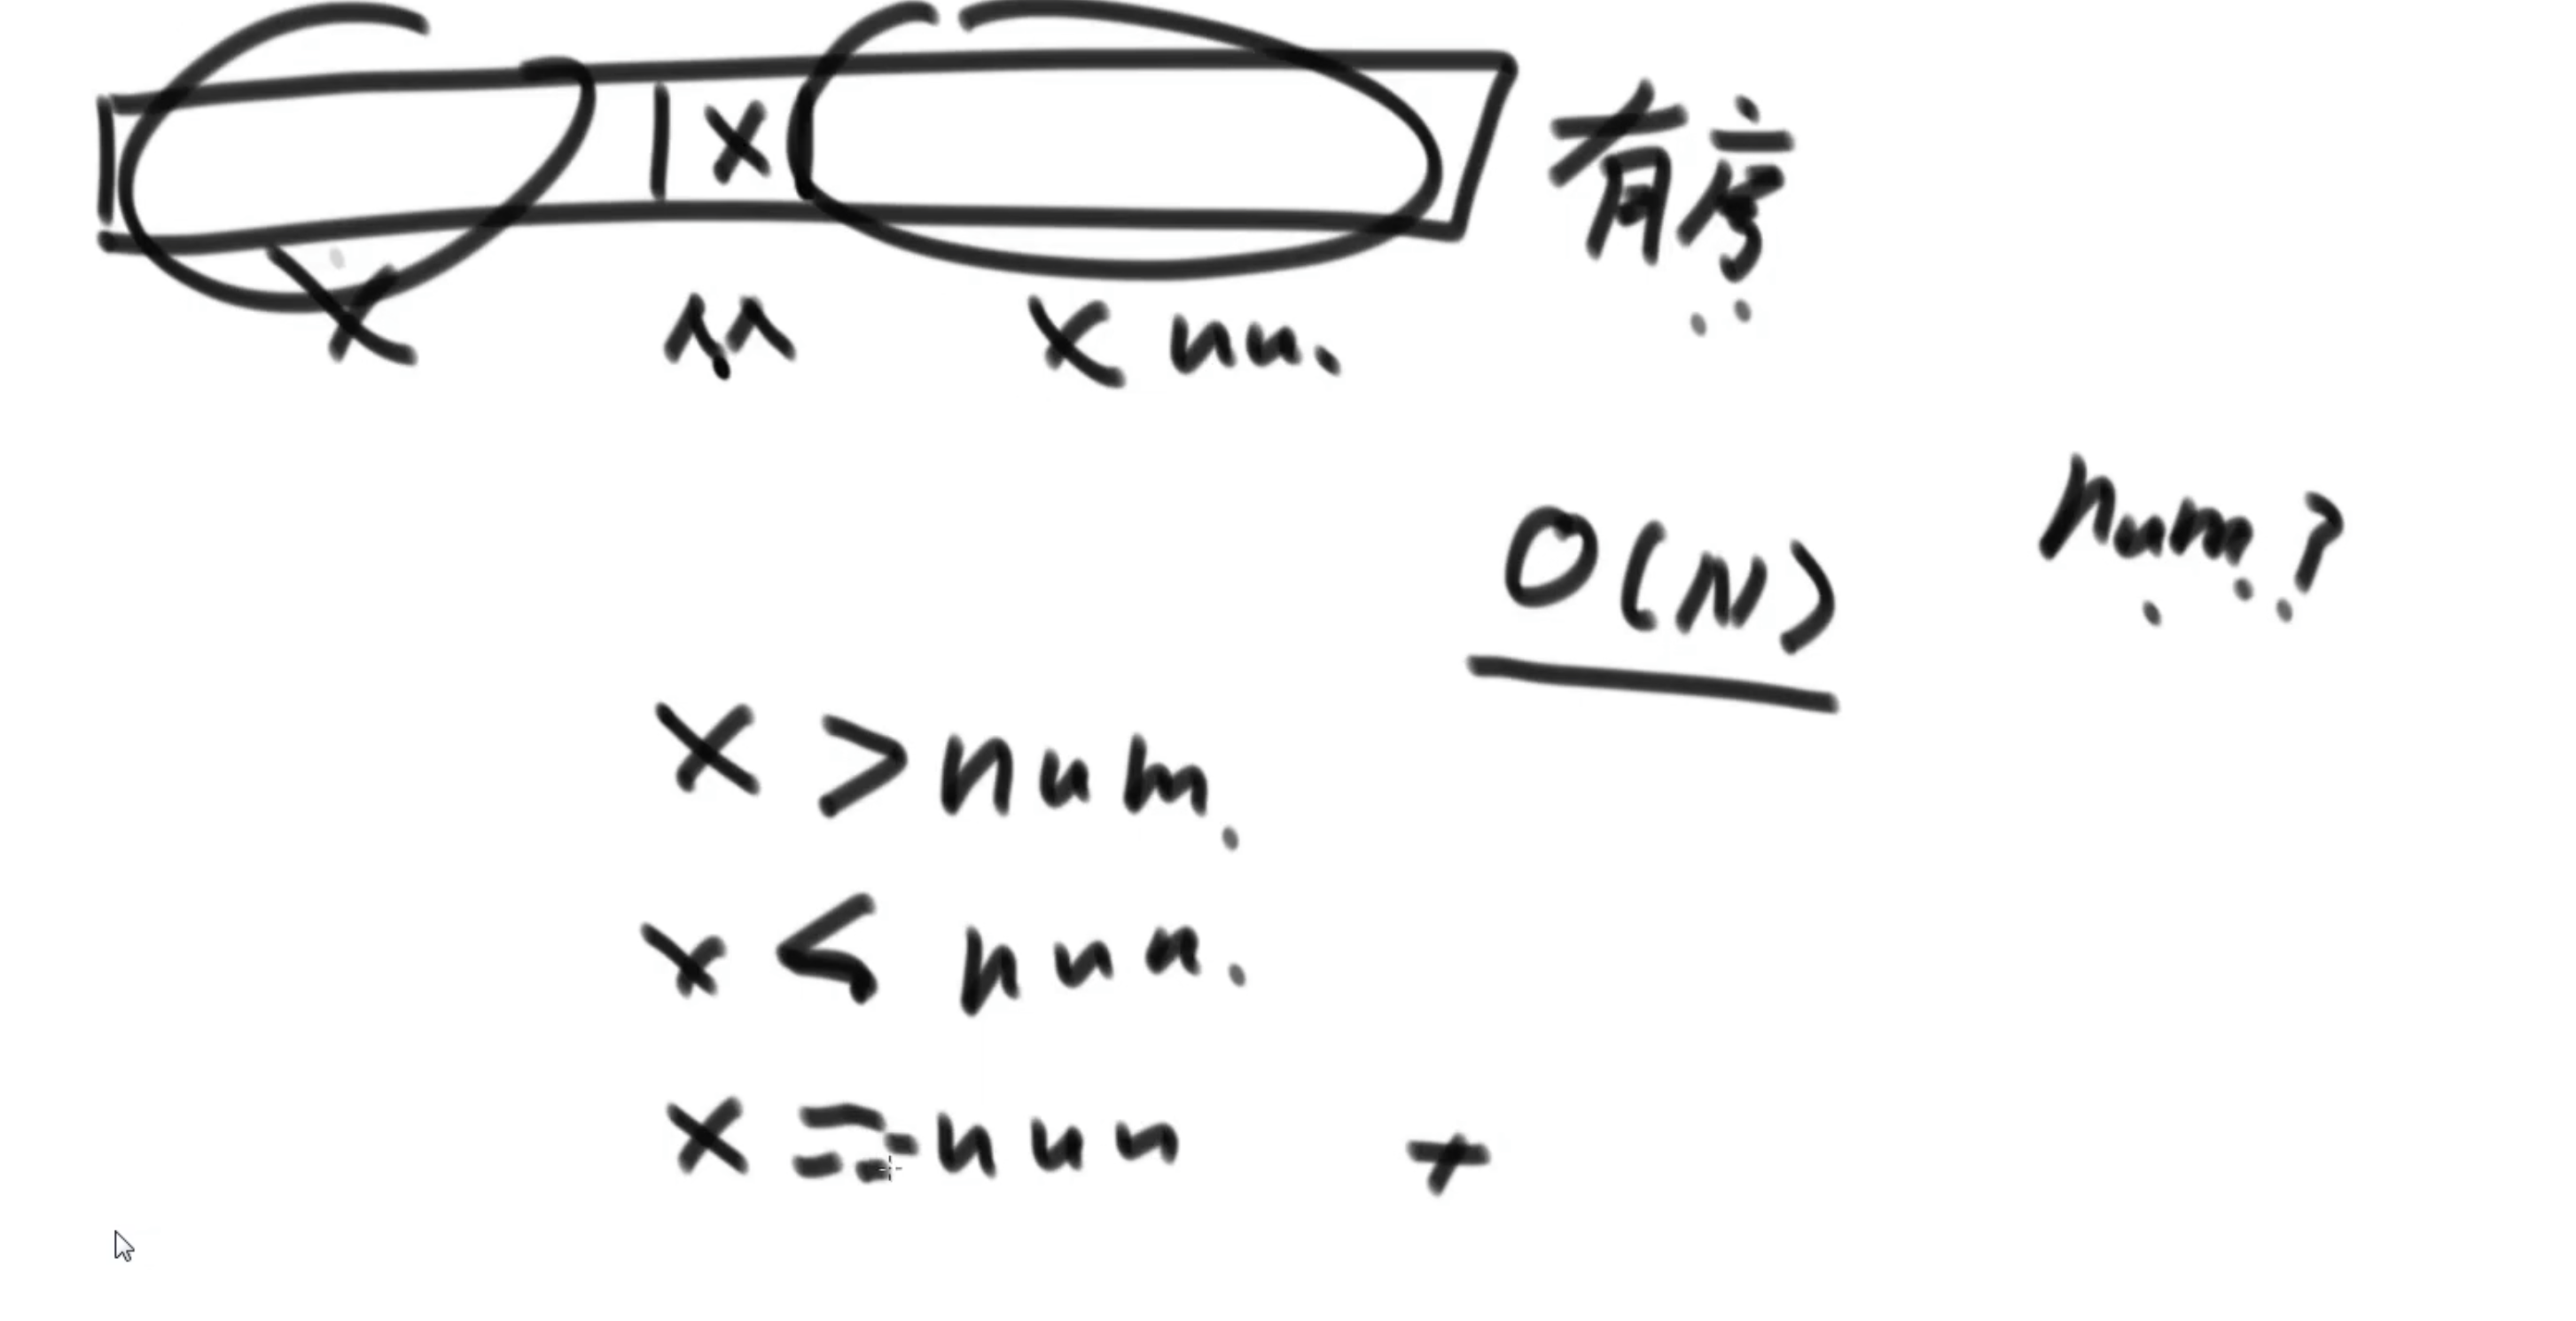 X 有序
X X nu.
O(N) num?
X > num.
X < num.
X = num